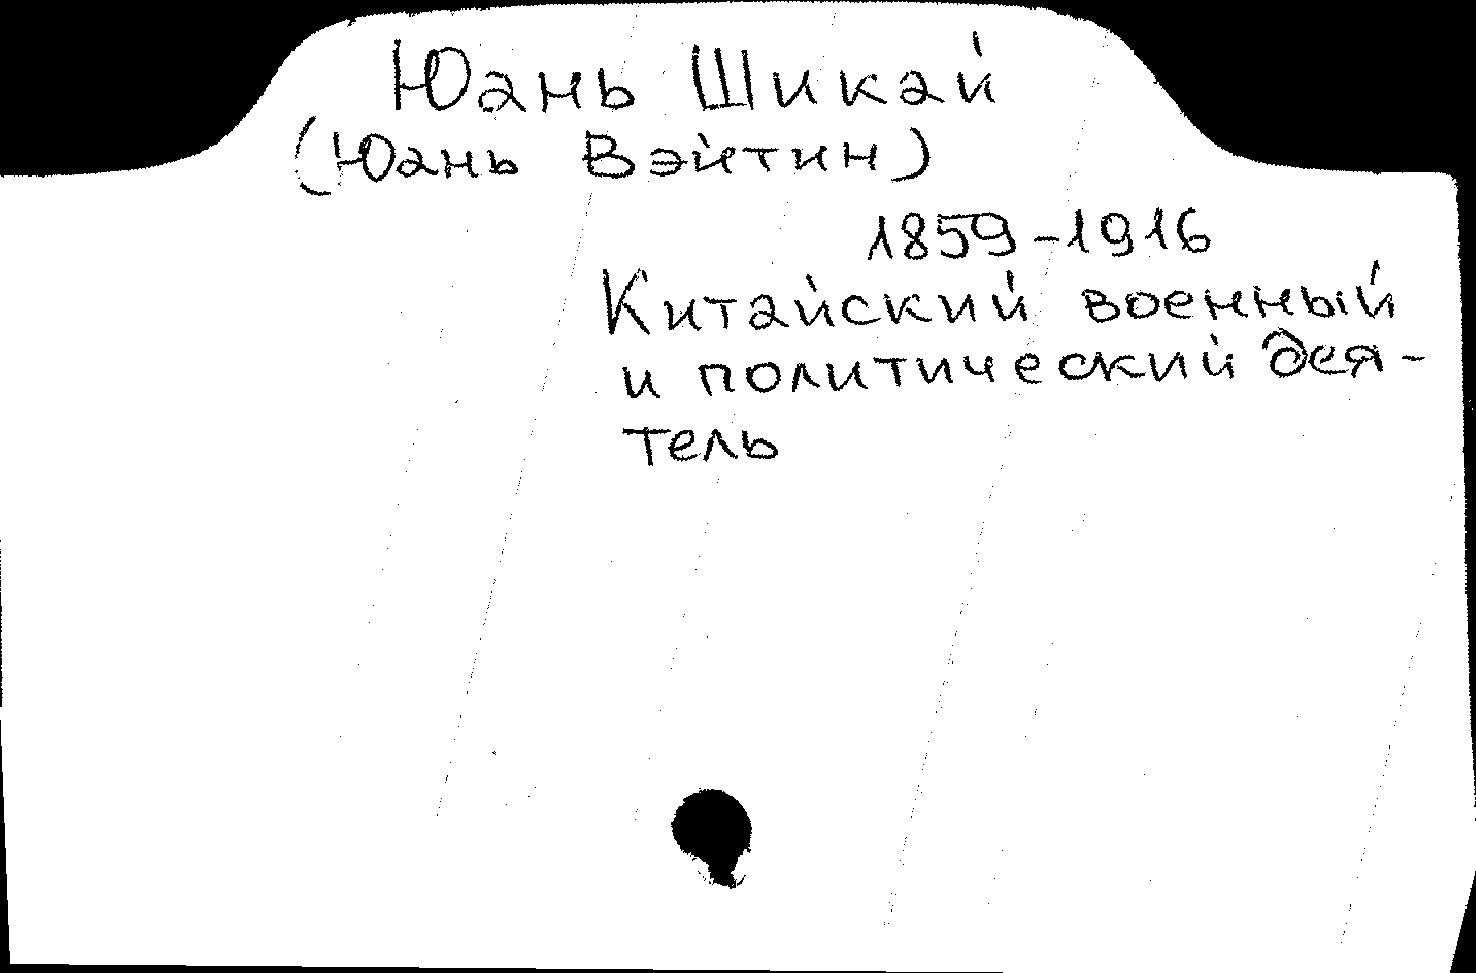 Юань Шикай
(Юань Вэйтин)
1859-1916
Китайский военный
и политический дея-
тель